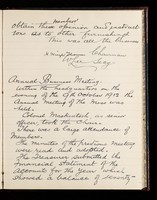 members
obtain their opinion and instruct-
ions as to other furnishings
This was all the business
Chairman
Hon Sec
Annual Business Meeting.
Within the headquarters on the
evening of the 9th October 1913 the
Annual Meeting of the Mess was
held.
Colonel as senior
officer, took the Chair.
There was a large attendance of
Members.
The Minutes of the previous Meeting
were read and adopted.
The Treasurer submitted the
Financial Statement of the
Account for the Year which
showed a balance of